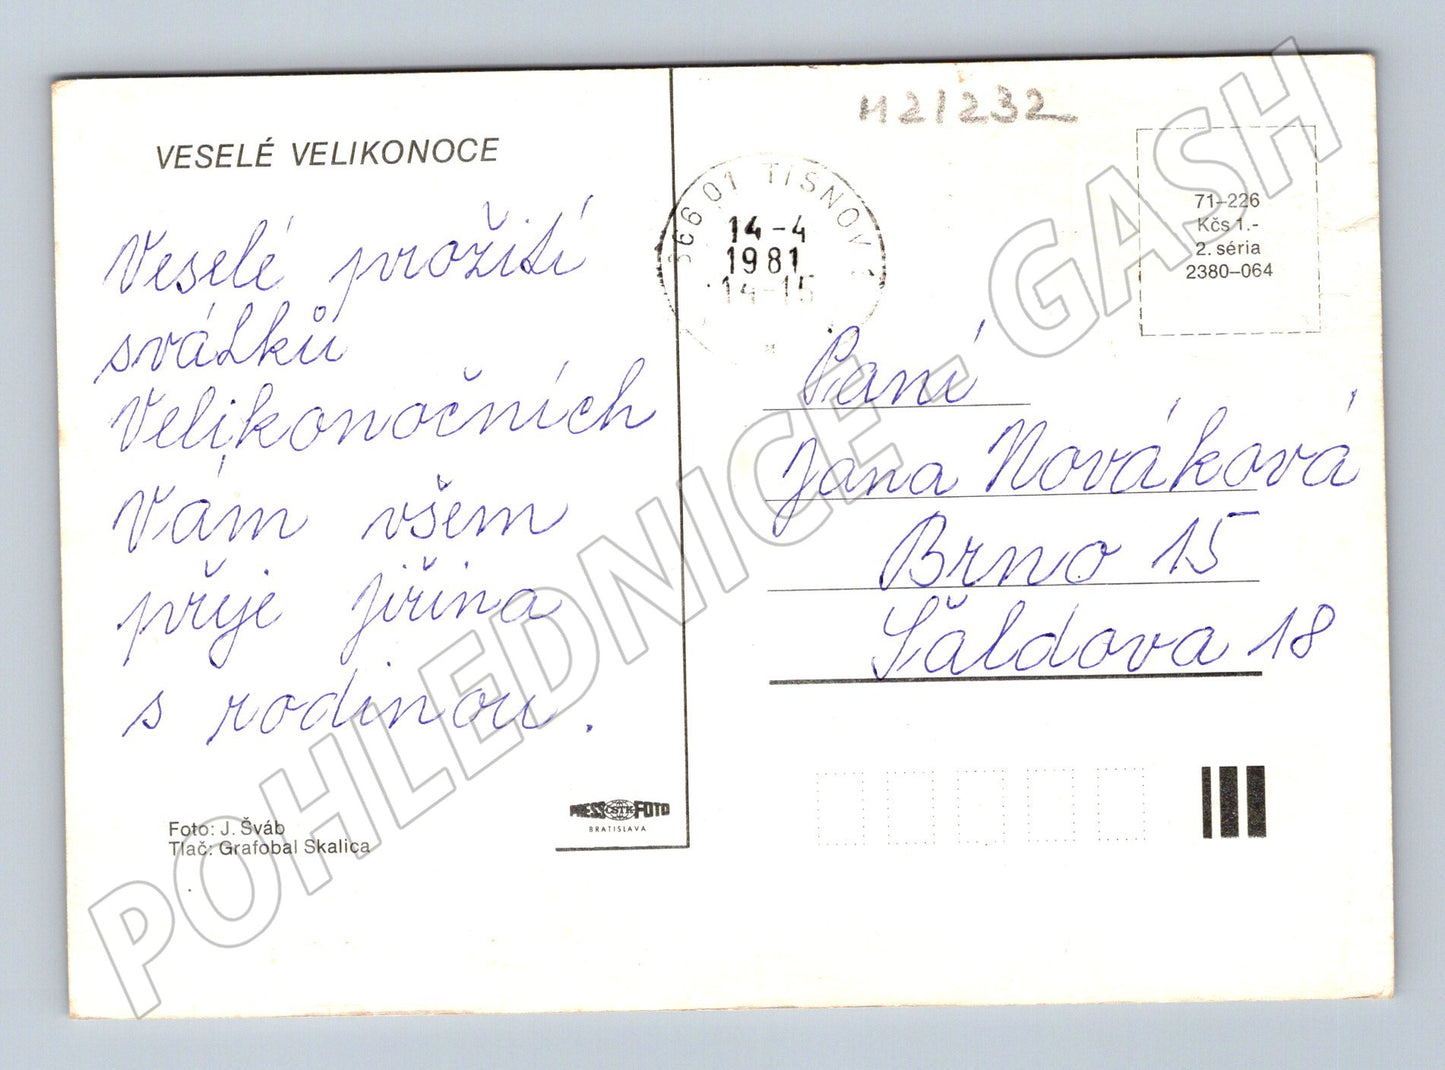 VESELÉ VELIKONOCE
Veselé prožití
svátků
Velikonočních
Vám všem
přeje Jiřina
s rodinou.
Foto: J. Šváb
Tlač: Grafobal Skalica
PRESS ČSTK FOTO
BRATISLAVA
M21232
666 01 TIŠNOV 1
14-4
1981
14-15
71–226
Kčs 1.-
2. séria
2380–064
Paní
Jana Nováková
Brno 15
Šaldova 18
POHLEDNICE - GASH